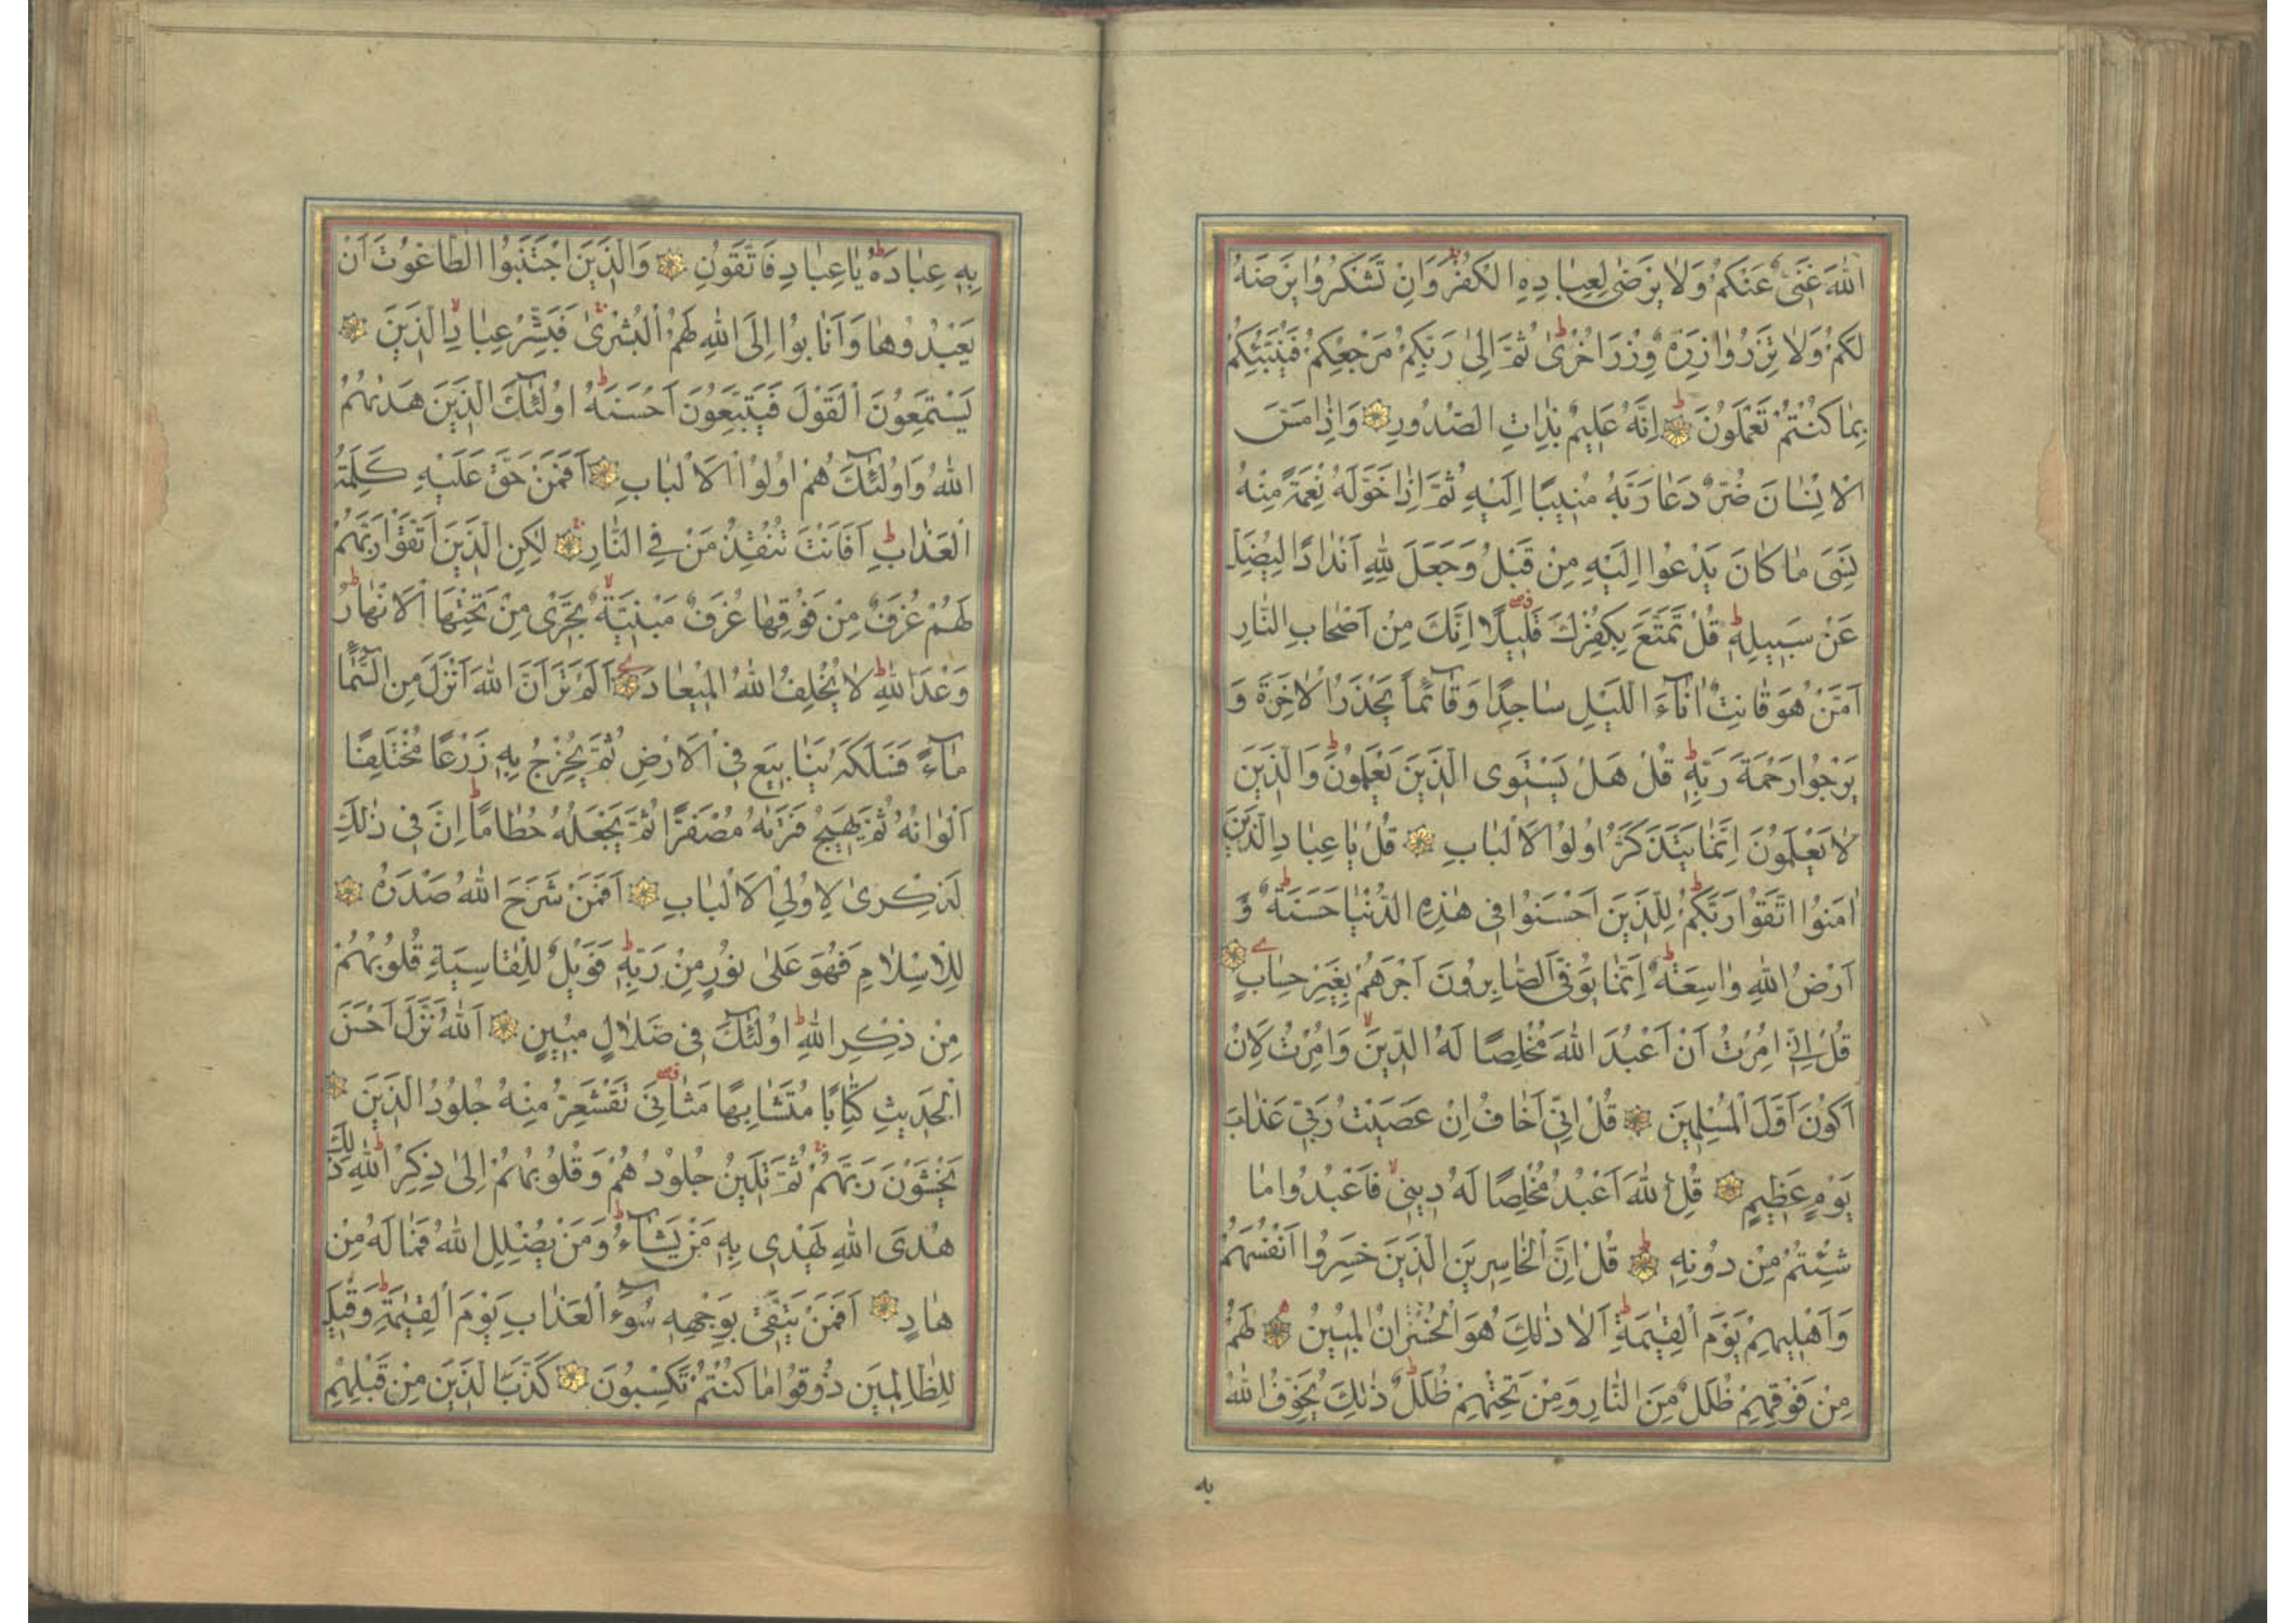 اللّٰهَ غَنِيٌّ عَنْكُمْ وَلَا يَرْضٰى لِعِبَادِهِ الْكُفْرَ وَاِنْ تَشْكُرُوا يَرْضَهُ
لَكُمْ وَلَا تَزِرُ وَازِرَةٌ وِزْرَ اُخْرٰى ثُمَّ اِلٰى رَبِّكُمْ مَرْجِعُكُمْ فَيُنَبِّئُكُمْ
بِمَا كُنْتُمْ تَعْمَلُونَ اِنَّهُ عَلِيمٌ بِذَاتِ الصُّدُورِ وَاِذَا مَسَّ
الْاِنْسَانَ ضُرٌّ دَعَا رَبَّهُ مُنِيبًا اِلَيْهِ ثُمَّ اِذَا خَوَّلَهُ نِعْمَةً مِنْهُ
نَسِيَ مَا كَانَ يَدْعُوا اِلَيْهِ مِنْ قَبْلُ وَجَعَلَ لِلّٰهِ اَنْدَادًا لِيُضِلَّ
عَنْ سَبِيلِهِ قُلْ تَمَتَّعْ بِكُفْرِكَ قَلِيلًا اِنَّكَ مِنْ اَصْحَابِ النَّارِ
اَمَّنْ هُوَ قَانِتٌ اٰنَآءَ اللَّيْلِ سَاجِدًا وَقَآئِمًا يَحْذَرُ الْاٰخِرَةَ وَ
يَرْجُوا رَحْمَةَ رَبِّهِ قُلْ هَلْ يَسْتَوِى الَّذِينَ يَعْلَمُونَ وَالَّذِينَ
لَا يَعْلَمُونَ اِنَّمَا يَتَذَكَّرُ اُولُوا الْاَلْبَابِ قُلْ يَا عِبَادِ الَّذِينَ
اٰمَنُوا اتَّقُوا رَبَّكُمْ لِلَّذِينَ اَحْسَنُوا فِى هٰذِهِ الدُّنْيَا حَسَنَةٌ وَ
اَرْضُ اللّٰهِ وَاسِعَةٌ اِنَّمَا يُوَفَّى الصَّابِرُونَ اَجْرَهُمْ بِغَيْرِ حِسَابٍ
قُلْ اِنِّى اُمِرْتُ اَنْ اَعْبُدَ اللّٰهَ مُخْلِصًا لَهُ الدِّينَ وَاُمِرْتُ لِاَنْ
اَكُونَ اَوَّلَ الْمُسْلِمِينَ قُلْ اِنِّى اَخَافُ اِنْ عَصَيْتُ رَبِّى عَذَابَ
يَوْمٍ عَظِيمٍ قُلِ اللّٰهَ اَعْبُدُ مُخْلِصًا لَهُ دِينِى فَاعْبُدُوا مَا
شِئْتُمْ مِنْ دُونِهِ قُلْ اِنَّ الْخَاسِرِينَ الَّذِينَ خَسِرُوا اَنْفُسَهُمْ
وَاَهْلِيهِمْ يَوْمَ الْقِيٰمَةِ اَلَا ذٰلِكَ هُوَ الْخُسْرَانُ الْمُبِينُ لَهُمْ
مِنْ فَوْقِهِمْ ظُلَلٌ مِنَ النَّارِ وَمِنْ تَحْتِهِمْ ظُلَلٌ ذٰلِكَ يُخَوِّفُ اللّٰهُ
به
بِهِ عِبَادَهُ يَا عِبَادِ فَاتَّقُونِ وَالَّذِينَ اجْتَنَبُوا الطَّاغُوتَ اَنْ
يَعْبُدُوهَا وَاَنَابُوا اِلَى اللّٰهِ لَهُمُ الْبُشْرٰى فَبَشِّرْ عِبَادِ الَّذِينَ
يَسْتَمِعُونَ الْقَوْلَ فَيَتَّبِعُونَ اَحْسَنَهُ اُولٰٓئِكَ الَّذِينَ هَدٰيهُمُ
اللّٰهُ وَاُولٰٓئِكَ هُمْ اُولُوا الْاَلْبَابِ اَفَمَنْ حَقَّ عَلَيْهِ كَلِمَةُ
الْعَذَابِ اَفَاَنْتَ تُنْقِذُ مَنْ فِى النَّارِ لٰكِنِ الَّذِينَ اتَّقَوْا رَبَّهُمْ
لَهُمْ غُرَفٌ مِنْ فَوْقِهَا غُرَفٌ مَبْنِيَّةٌ تَجْرِى مِنْ تَحْتِهَا الْاَنْهَارُ
وَعْدَ اللّٰهِ لَا يُخْلِفُ اللّٰهُ الْمِيعَادَ اَلَمْ تَرَ اَنَّ اللّٰهَ اَنْزَلَ مِنَ السَّمَآءِ
مَآءً فَسَلَكَهُ يَنَابِيعَ فِى الْاَرْضِ ثُمَّ يُخْرِجُ بِهِ زَرْعًا مُخْتَلِفًا
اَلْوَانُهُ ثُمَّ يَهِيجُ فَتَرٰيهُ مُصْفَرًّا ثُمَّ يَجْعَلُهُ حُطَامًا اِنَّ فِى ذٰلِكَ
لَذِكْرٰى لِاُولِى الْاَلْبَابِ اَفَمَنْ شَرَحَ اللّٰهُ صَدْرَهُ
لِلْاِسْلَامِ فَهُوَ عَلٰى نُورٍ مِنْ رَبِّهِ فَوَيْلٌ لِلْقَاسِيَةِ قُلُوبُهُمْ
مِنْ ذِكْرِ اللّٰهِ اُولٰٓئِكَ فِى ضَلَالٍ مُبِينٍ اَللّٰهُ نَزَّلَ اَحْسَنَ
الْحَدِيثِ كِتَابًا مُتَشَابِهًا مَثَانِىَ تَقْشَعِرُّ مِنْهُ جُلُودُ الَّذِينَ
يَخْشَوْنَ رَبَّهُمْ ثُمَّ تَلِينُ جُلُودُهُمْ وَقُلُوبُهُمْ اِلٰى ذِكْرِ اللّٰهِ ذٰلِكَ
هُدَى اللّٰهِ يَهْدِى بِهِ مَنْ يَشَآءُ وَمَنْ يُضْلِلِ اللّٰهُ فَمَا لَهُ مِنْ
هَادٍ اَفَمَنْ يَتَّقِى بِوَجْهِهِ سُوٓءَ الْعَذَابِ يَوْمَ الْقِيٰمَةِ وَقِيلَ
لِلظَّالِمِينَ ذُوقُوا مَا كُنْتُمْ تَكْسِبُونَ كَذَّبَ الَّذِينَ مِنْ قَبْلِهِمْ